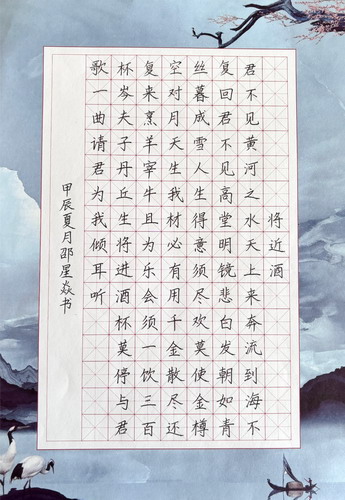 将近酒
君不见黄河之水天上来奔流到海不
复回君不见高堂明镜悲白发朝如青
丝暮成雪人生得意须尽欢莫使金樽
空对月天生我材必有用千金散尽还
复来烹羊宰牛且为乐会须一饮三百
杯岑夫子丹丘生将进酒杯莫停与君
歌一曲请君为我倾耳听
甲辰夏月邵星焱书